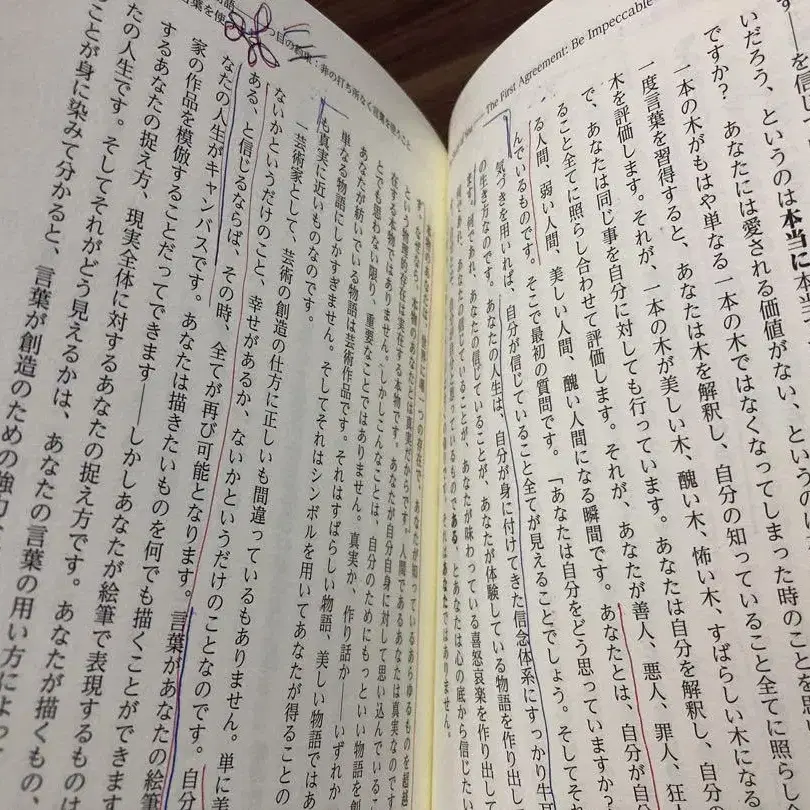 The First Agreement: Be Impeccable
を信
いだろう、というのは本当に
ですか？　あなたには愛される価値がない、というの
一本の木がもはや単なる一本の木ではなくなってしまった時のことを思い
一度言葉を習得すると、あなたは木を解釈し、自分の知っていること全てに照らし
木を評価します。それが、一本の木が美しい木、醜い木、怖い木、すばらしい木になる
で、あなたは同じ事を自分に対しても行っています。あなたは自分を解釈し、自
ること全てに照らし合わせて評価します。それが、あなたが善人、悪人、罪人、狂
る人間、弱い人間、美しい人間、醜い人間になる瞬間です。あなたとは、自分が自
んでいるものです。そこで最初の質問です。「あなたは自分をどう思っていますか？
気づきを用いれば、自分が信じていること全てが見えることでしょう。そしてそ
の生き方なのです。あなたの人生は、自分が身に付けてきた信念体系にすっかり牛耳
ます。何であれ、あなたの信じていることが、あなたが体験している物語を作り出し
何であれ、あなたの信じていることが、あなたが味わっている喜怒哀楽を作り出して
思っているものである、とあなたは心の底から信じたい
それはあなたではありません。
目の約束：非の打ち所なく言葉を使うこと
本物のあなたは、世界に唯一つの存在で、あなたが知っているあらゆるものを超越
す。なぜなら、本物のあなたとは真実だからです。人間であるあなたは真実なのです
という物理的存在は実在する本物です。あなたが自分自身に対して思い込んでいること
在する本物ではありません。しかしこんなことは、自分のためにもっといい物語を創
とでも思わない限り、重要なことではありません。真実か、作り話か――いずれか
あなたが紡いでいる物語は芸術作品です。それはすばらしい物語、美しい物語ではあ
単なる物語にしかすぎません。そしてそれはシンボルを用いてあなたが得ることの
も真実に近いものなのです。
一芸術家として、芸術の創造の仕方に正しいも間違っているもありません。単に美
ないかというだけのこと、幸せがあるか、ないかというだけのことなのです。自分
ある、と信じるならば、その時、全てが再び可能となります。言葉があなたの絵筆
なたの人生がキャンバスです。あなたは描きたいものを何でも描くことができます
家の作品を模倣することだってできます――しかしあなたが絵筆で表現するものは
するあなたの捉え方、現実全体に対するあなたの捉え方です。あなたが描くもの、
たの人生です。そしてそれがどう見えるかは、あなたの言葉の用い方によって
ことが身に染みて分かると、言葉が創造のための強力